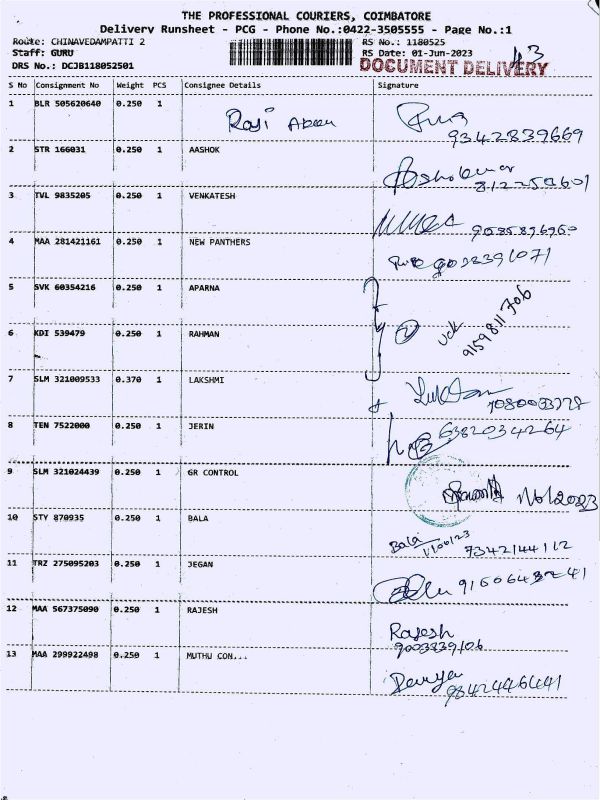 THE PROFESSIONAL COURIERS, COIMBATORE
Delivery Runsheet - PCG - Phone No.:0422-3505555 - Page No.:1
Route: CHINAVEDAMPATTI 2 RS No.: 1180525
Staff: GURU RS Date: 01-Jun-2023
DRS No.: DCJB118052501 DOCUMENT DELIVERY
S No Consignment No Weight PCS Consignee Details Signature
1 BLR 505620640 0.250 1
9342839669
2 STR 166031 0.250 1 AASHOK
3 TVL 9835205 0.250 1 VENKATESH
4 MAA 281421161 0.250 1 NEW PANTHERS
5 SVK 60354216 0.250 1 APARNA
6 KDI 539479 0.250 1 RAHMAN
9159811706
7 SLM 321009533 0.370 1 LAKSHMI
8 TEN 7522000 0.250 1 JERIN
6382034264
9 SLM 321024439 0.250 1 GR CONTROL
10 STY 870935 0.250 1 BALA
Bala 1/06/23 7342144112
11 TRZ 275095203 0.250 1 JEGAN
12 MAA 567375090 0.250 1 RAJESH
Rajesh
9003339106
13 MAA 299922498 0.250 1 MUTHU CON...
Divya
9842446441